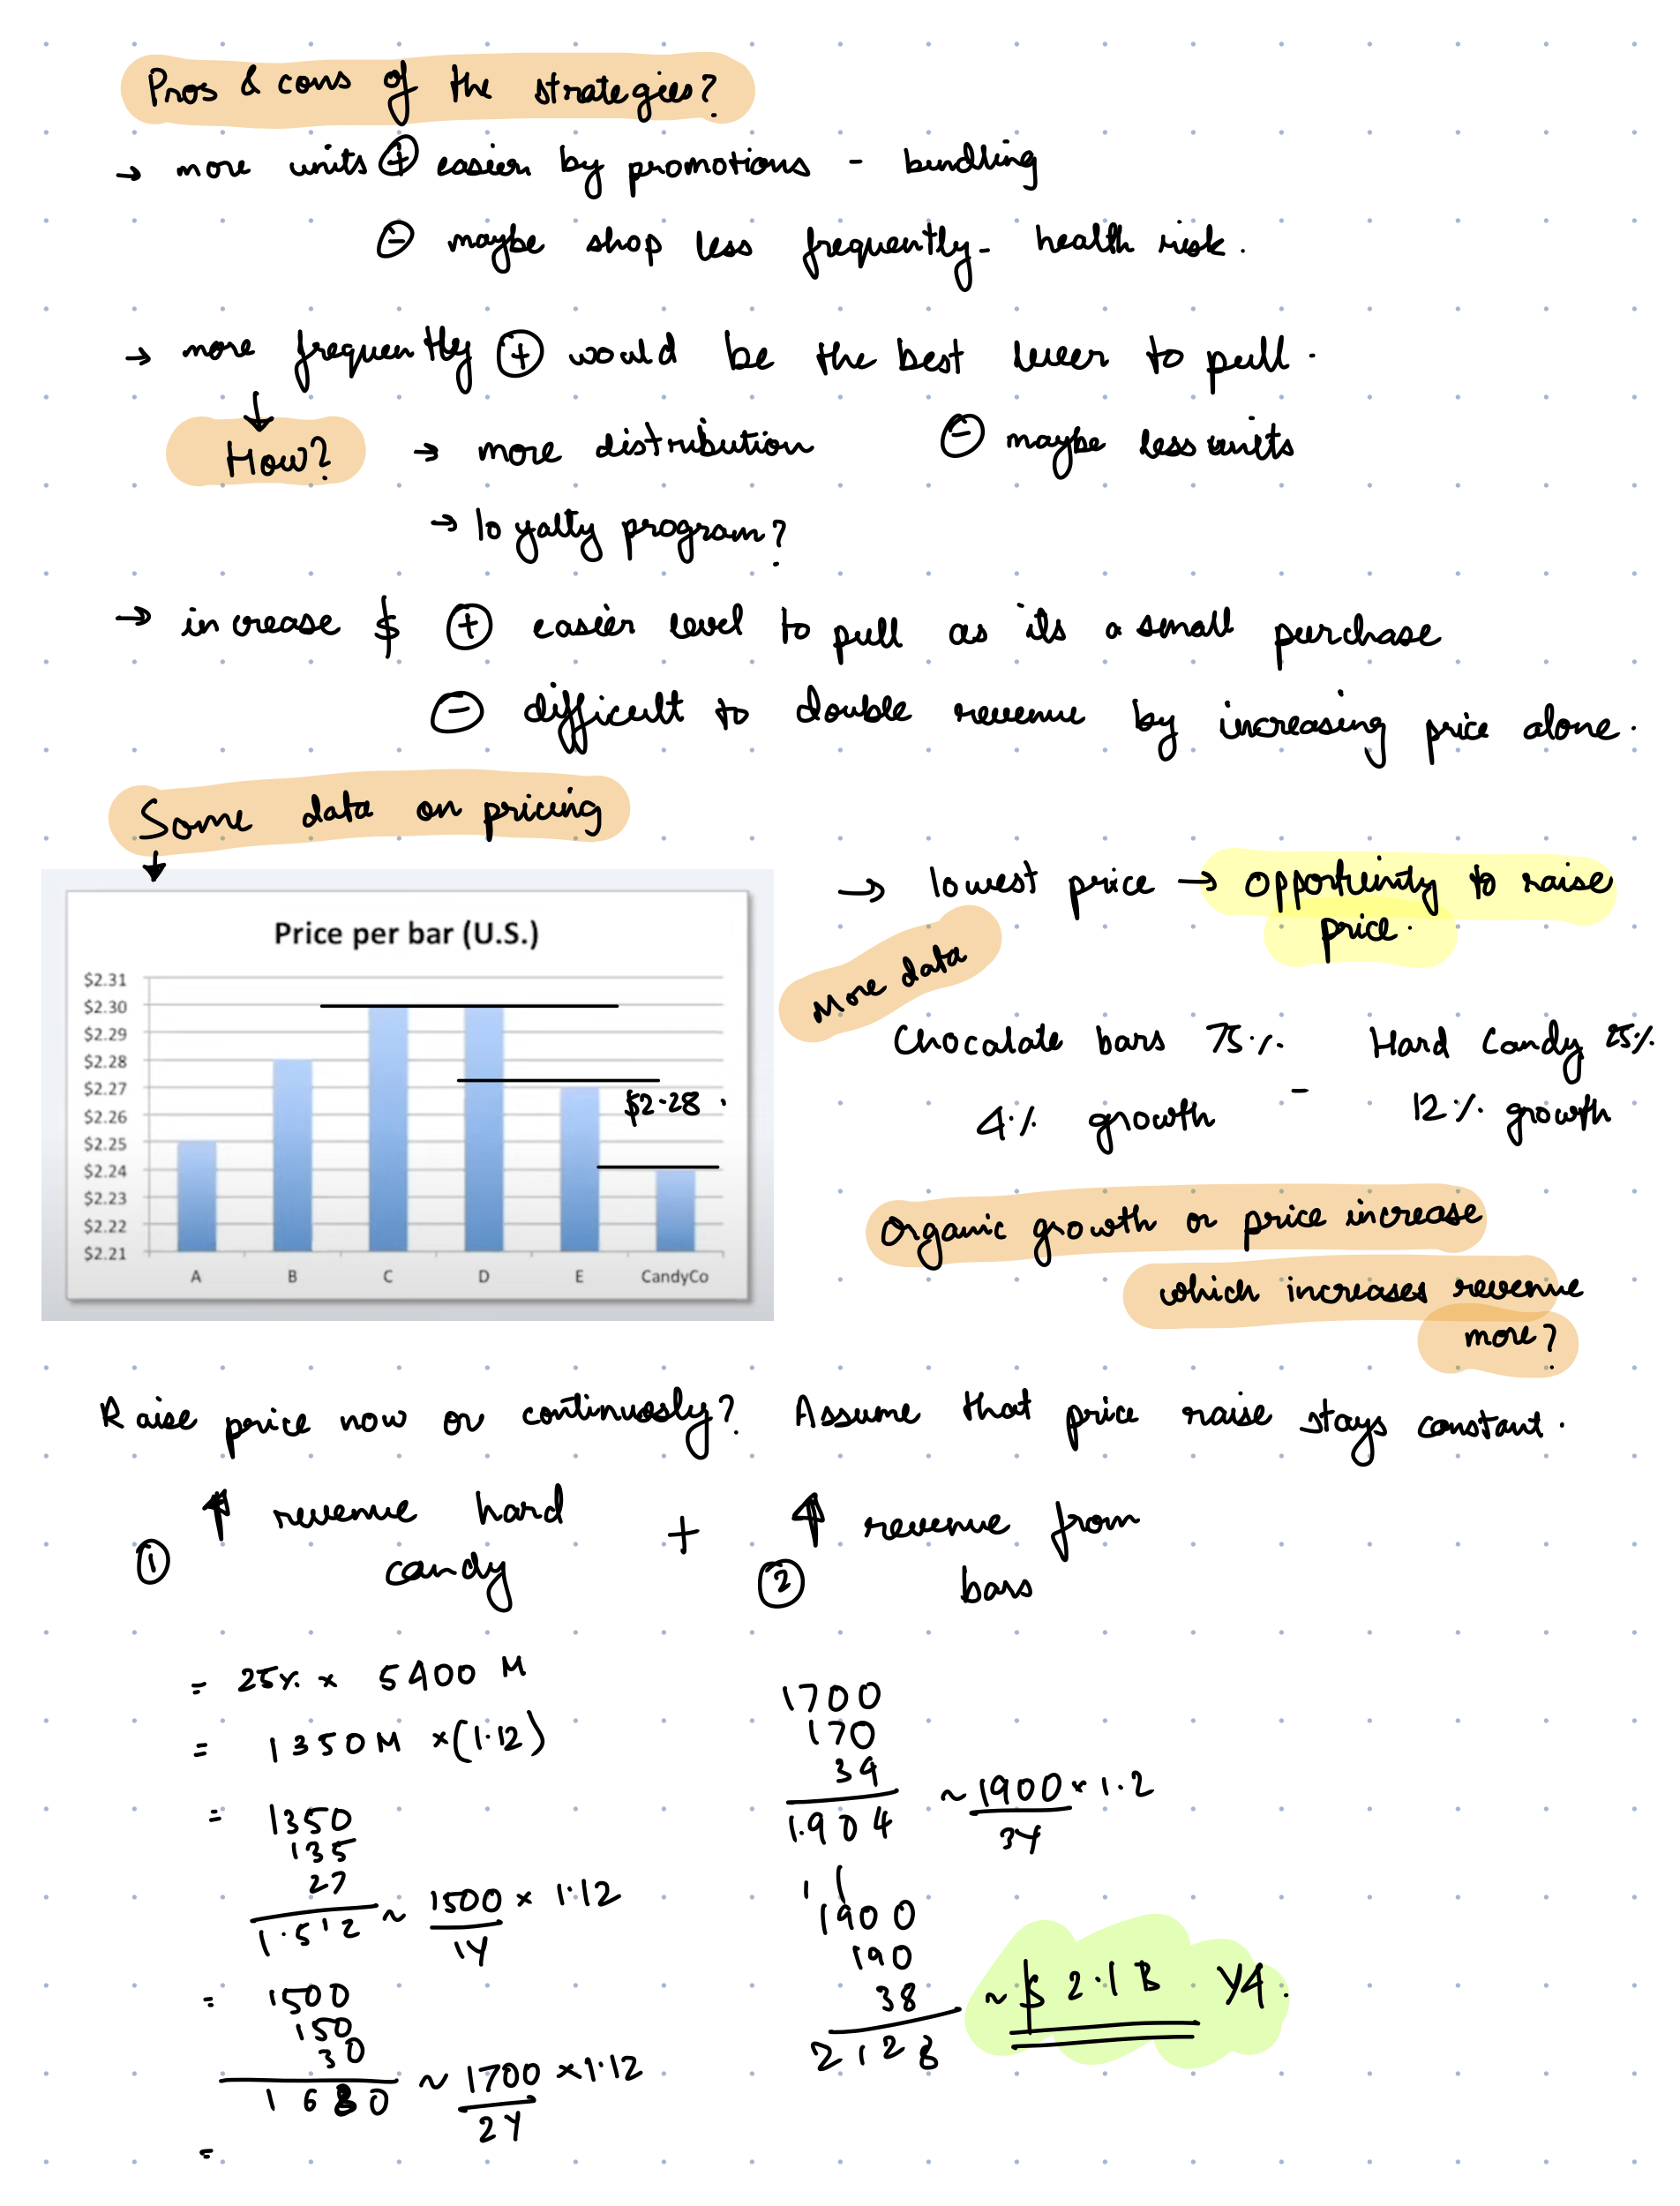 Pros & cons of the strategies?
→ more units ⊕ easier by promotions - bundling
⊖ maybe shop less frequently - health risk.
→ more frequently ⊕ would be the best lever to pull.
↓
How? → more distribution ⊖ maybe less units
→ loyalty program?
→ increase $ ⊕ easier level to pull as its a small purchase
⊖ difficult to double revenue by increasing price alone.
Some data on pricing
↓
Price per bar (U.S.)
$2.31
$2.30
$2.29
$2.28
$2.27
$2.26
$2.25
$2.24
$2.23
$2.22
$2.21
$2.28
A B C D E CandyCo
→ lowest price → opportunity to raise
price.
More data
Chocalate bars 75% Hard Candy 25%
4% growth - 12% growth
Organic growth or price increase
which increases revenue
more?
Raise price now or continuosly? Assume that price raise stays constant.
① ↑ revenue hard
candy
+
② ↑ revenue from
bars
= 25% × 5400 M
= 1350 M × (1.12)
= 1350
135
27
1.512 ~ 1500 × 1.12
1Y
= 1500
150
30
1680 ~ 1700 × 1.12
2Y
=
1700
170
34
1.904 ~ 1900 × 1.2
3Y
1 1
1900
190
38
2128 ~ $ 2.1 B Y4.